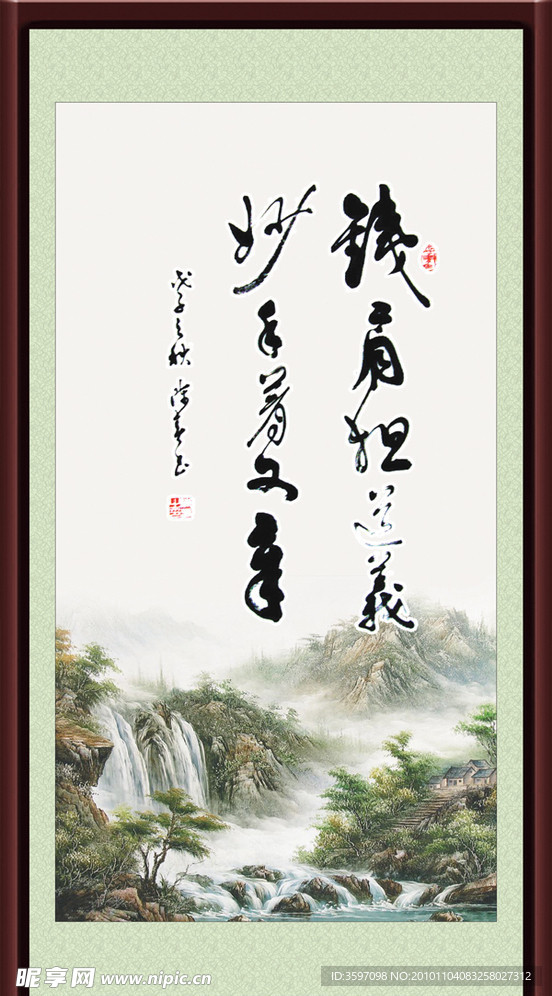 鐵肩担道義
妙手著文章
戊子之秋
昵享网 www.nipic.cn
ID:3597098 NO:20101104083258027312